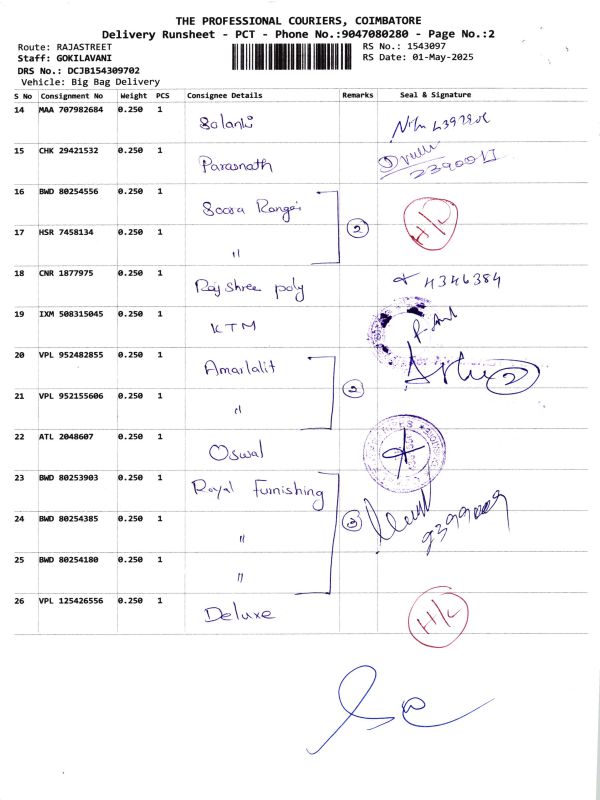 THE PROFESSIONAL COURIERS, COIMBATORE
Delivery Runsheet - PCT - Phone No.:9047080280 - Page No.:2
Route: RAJASTREET
RS No.: 1543097
Staff: GOKILAVANI
RS Date: 01-May-2025
DRS No.: DCJB154309702
Vehicle: Big Bag Delivery
S No Consignment No Weight PCS Consignee Details Remarks Seal & Signature
14 MAA 707982684 0.250 1 Solanki
15 CHK 29421532 0.250 1 Parasnath
16 BWD 80254556 0.250 1 Soora Rangai 2 H/L
17 HSR 7458134 0.250 1 "
18 CNR 1877975 0.250 1 Rajshree poly 4346384
19 IXM 508315045 0.250 1 KTM
20 VPL 952482855 0.250 1 Amarlalit 2 2
21 VPL 952155606 0.250 1 "
22 ATL 2048607 0.250 1 Oswal
23 BWD 80253903 0.250 1 Royal Furnishing 3
24 BWD 80254385 0.250 1 "
25 BWD 80254180 0.250 1 "
26 VPL 125426556 0.250 1 Deluxe H/L